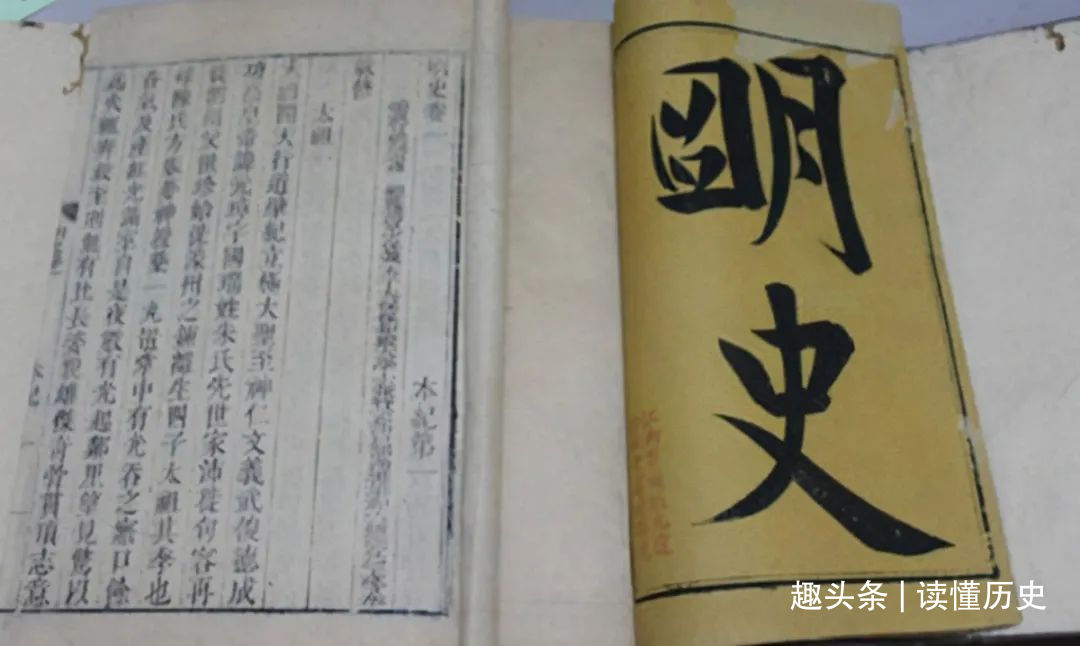 明史
明史卷一 本紀第一
敕修
太祖
太祖開天行道肇紀立極大聖至神仁文義武俊德成
功高皇帝諱元璋字國瑞姓朱氏先世家沛徙句容再
徙泗州父世珍始徙濠州之鍾離生四子太祖其季也
母陳氏方娠夢神授藥一丸置掌中有光吞之寤口餘
香氣及產紅光滿室自是夜數有光起鄰里望見驚以
為火輒奔救至則無有比長姿貌雄傑奇骨貫頂志意
本紀
趣头条 | 读懂历史